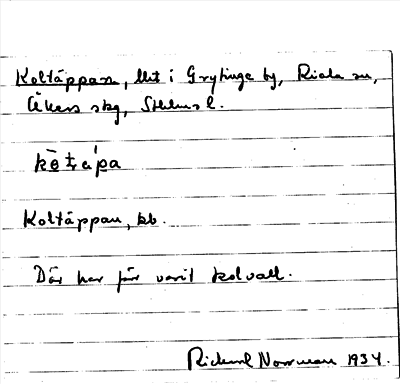 Koltäppan, llit i Grytinge by, Riala sn,
Åkers skg, Sthlms l.
kò̀ṭápa
Koltäppan, kb.
Där har för varit kolvall.
Rickard Norrman 1934.